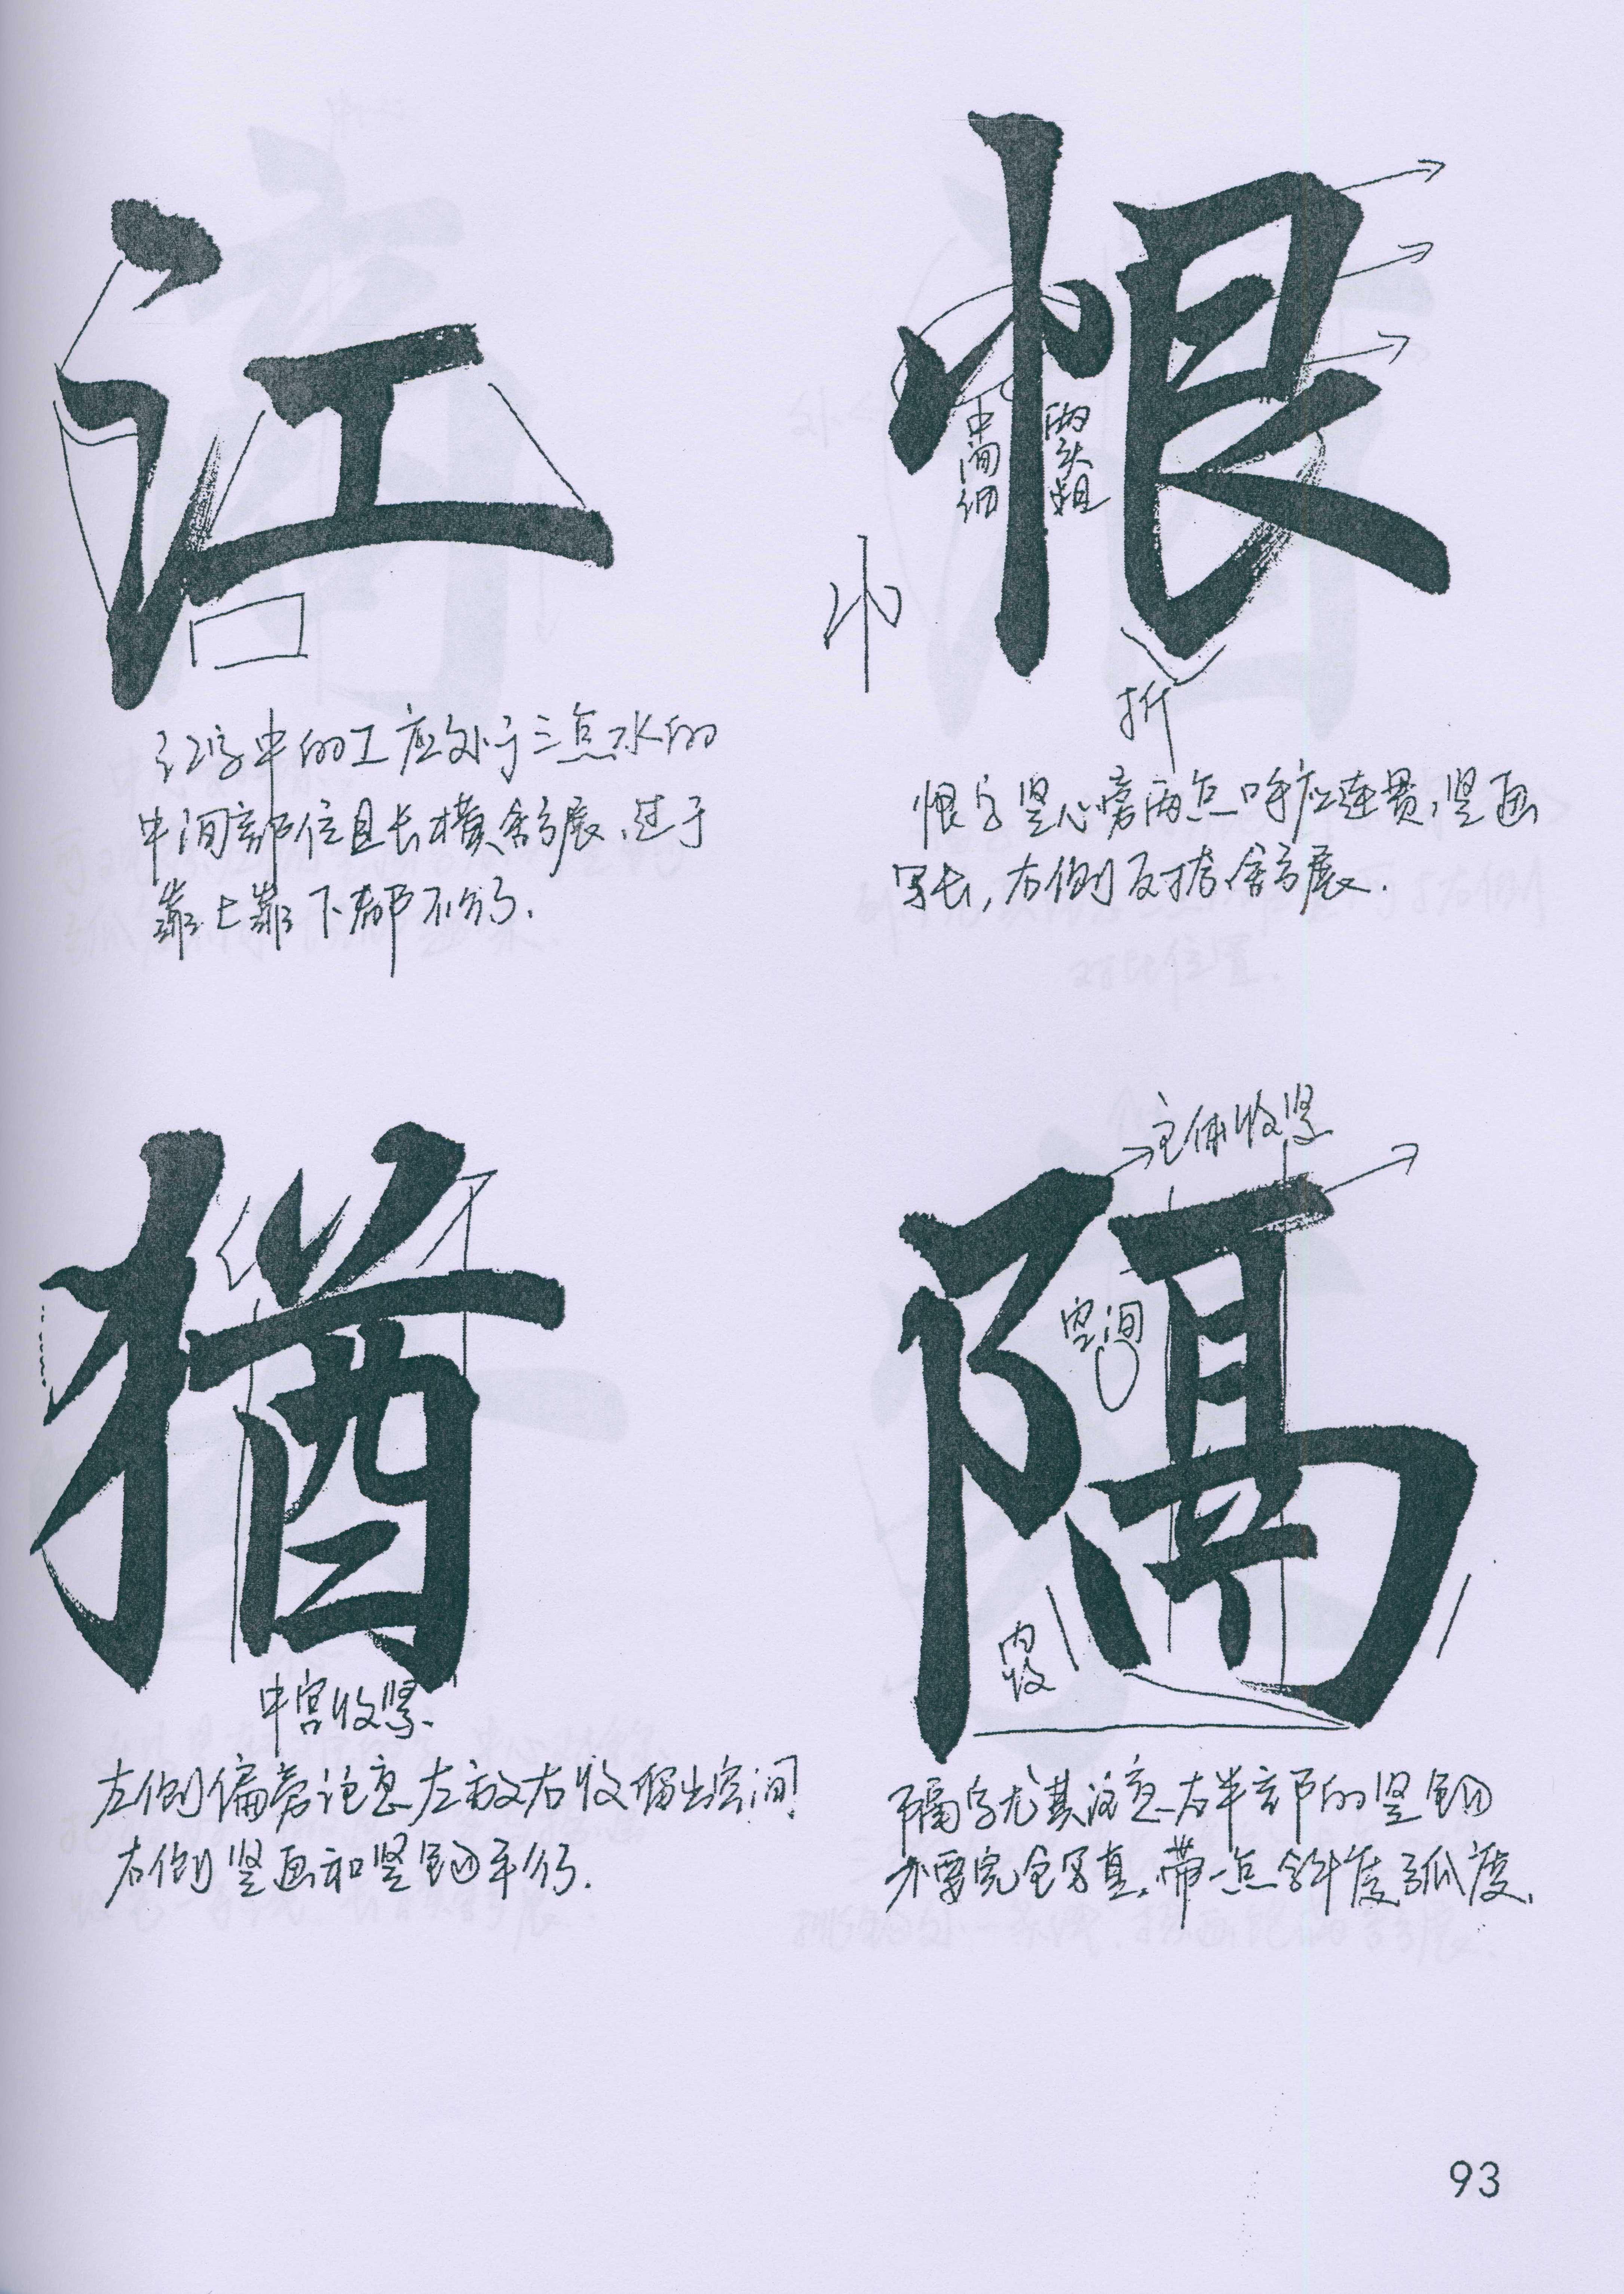 江
江字中的工应处于三点水的
中间部位且长横舒展,过于
靠上靠下都不行.
恨
中间细
两头粗
小
折
恨字竖心旁两点呼应连贯,竖画
写长,右侧反捺舒展.
猶
中宫收紧.
左侧偏旁注意左放右收留出空间!
右侧竖画和竖钩平行.
隔
主体收紧
空间
内收
隔字尤其注意右半部的竖钩
不要完全写直,带一点斜度弧度,
93